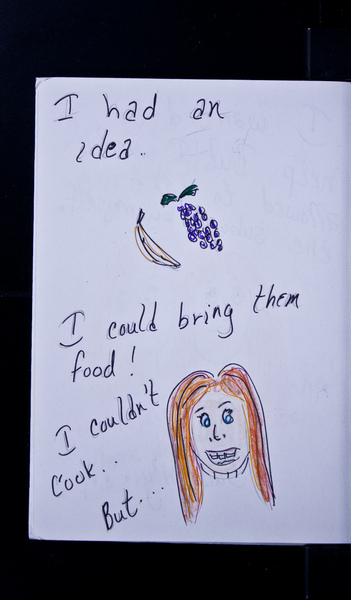 I had an
idea..
I could bring them
food!
I couldn't
cook..
But...